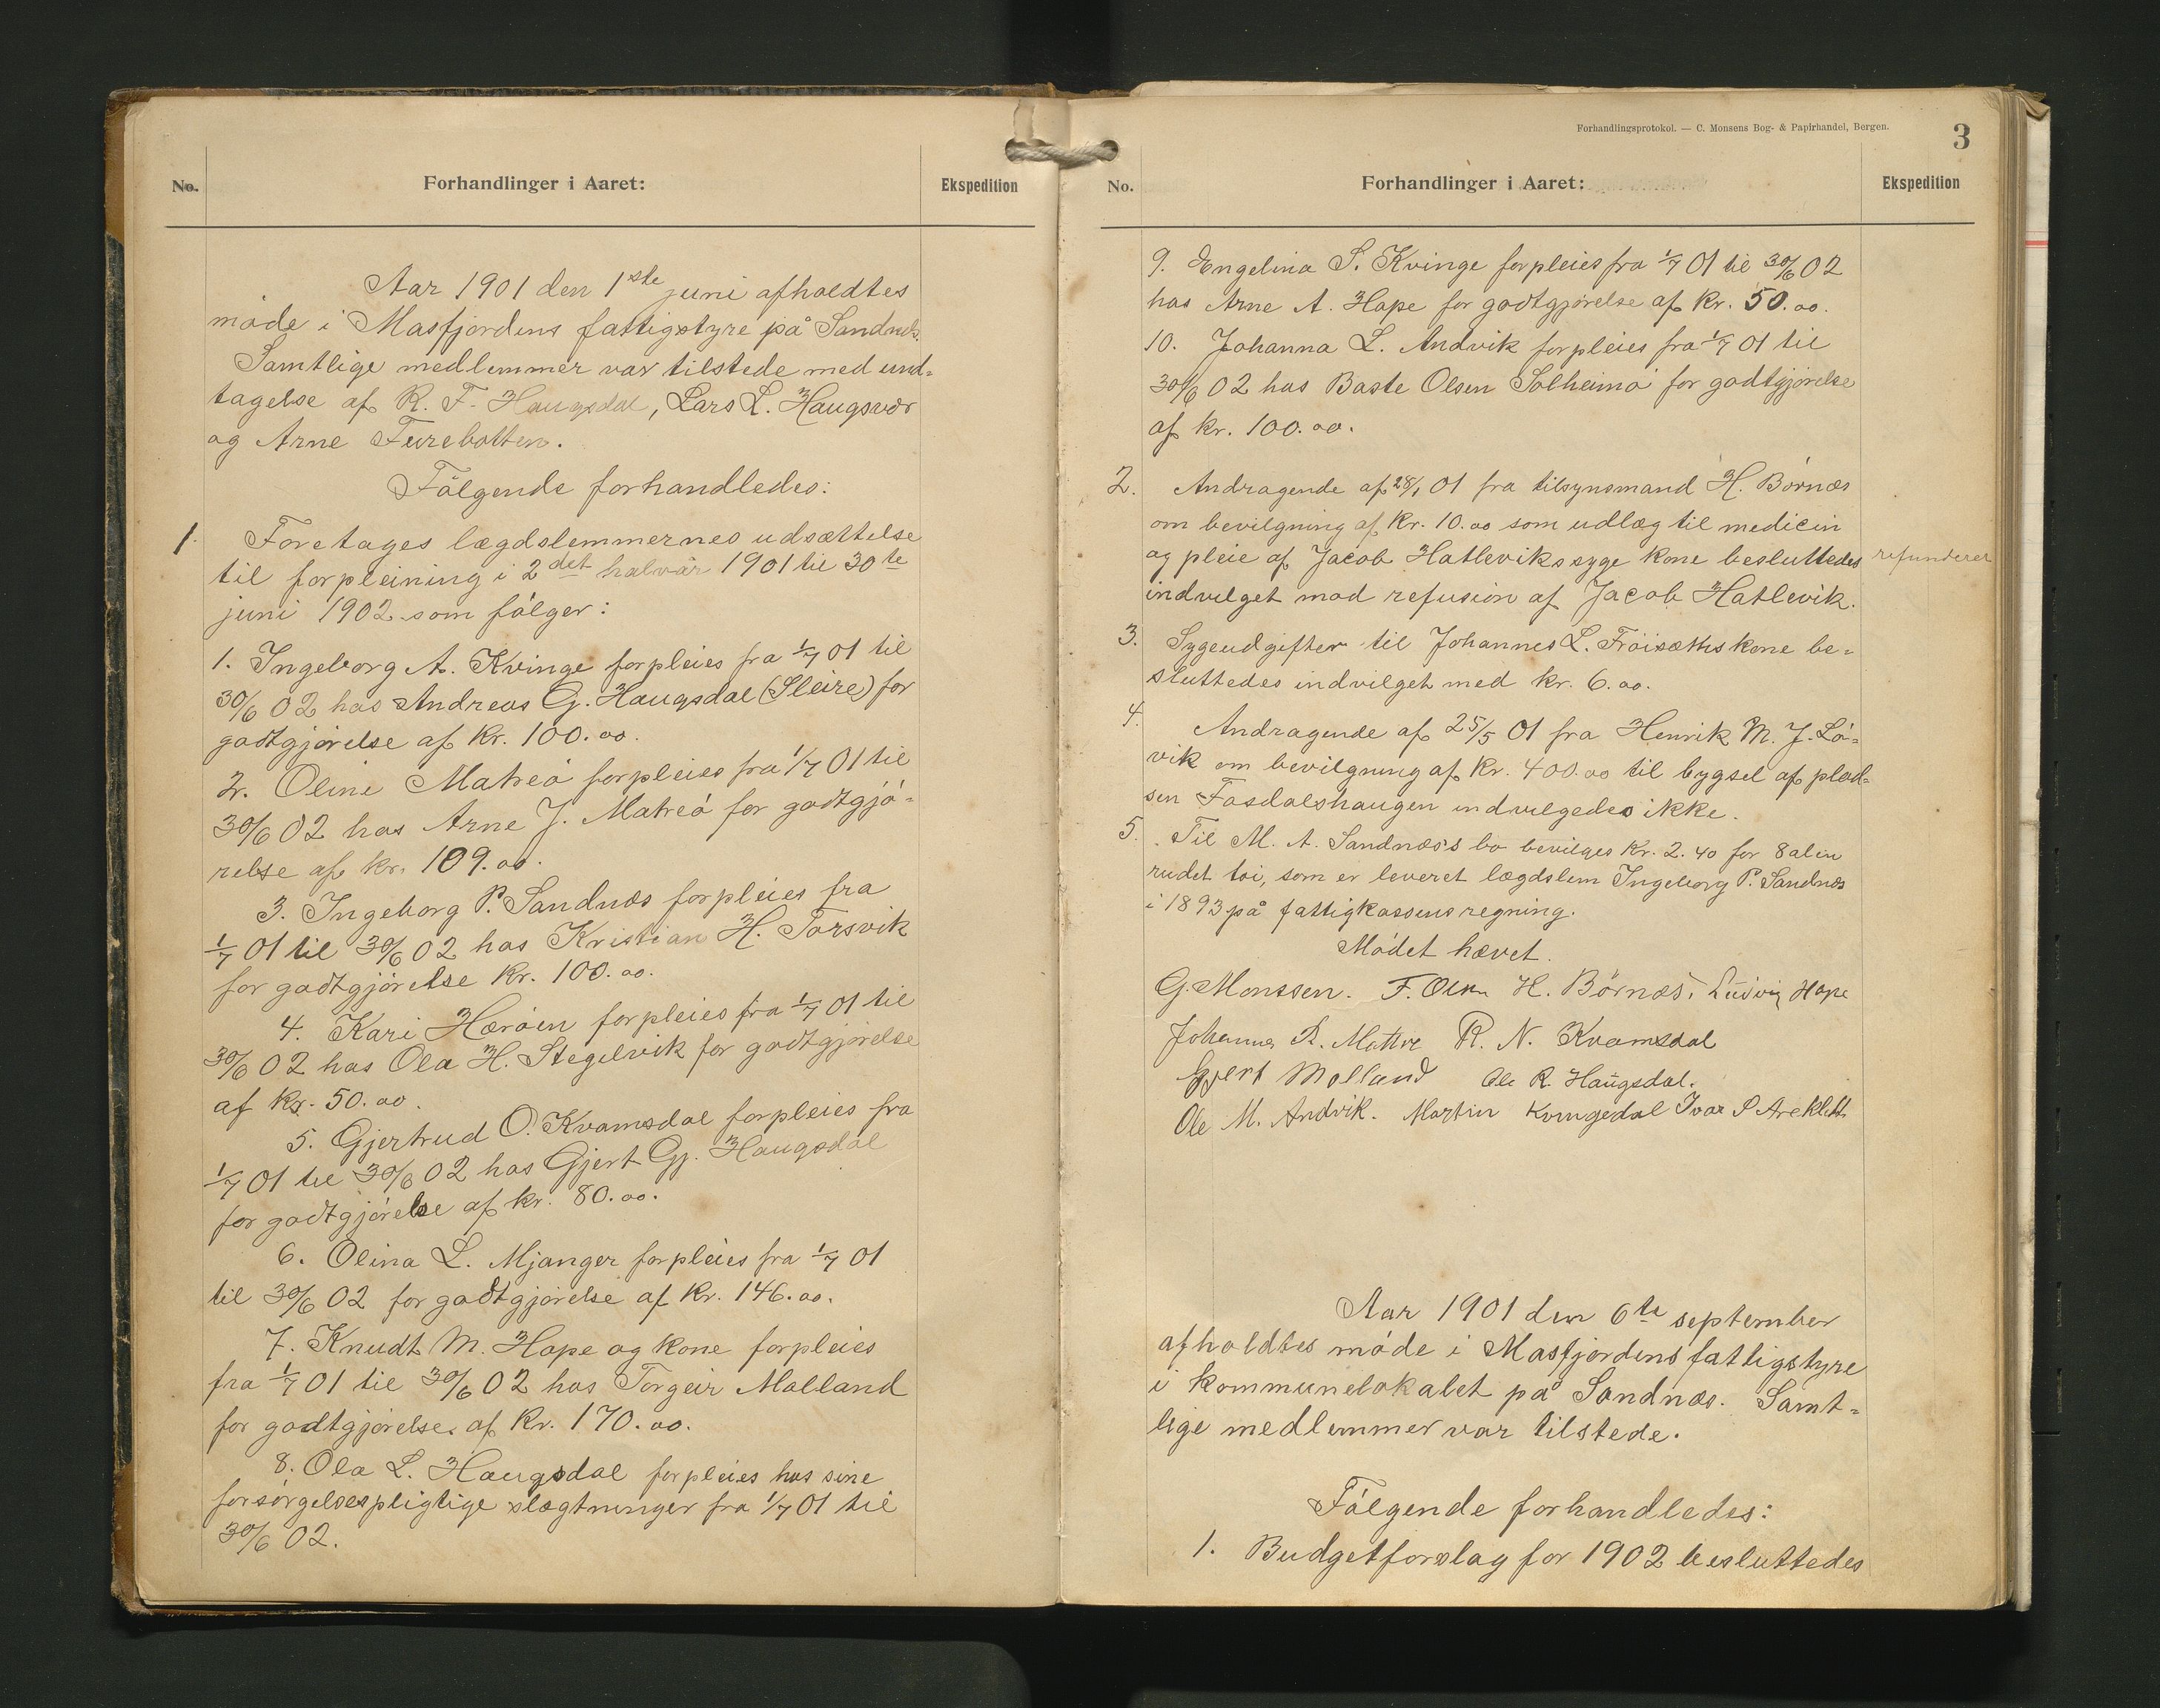 No.
Forhandlinger i Aaret:
Ekspedition
Aar 1901 den 1ste juni afholdtes
møde i Masfjordens fattigstyre på Sandnes.
Samtlige medlemmer var tilstede med und-
tagelse af R. F. Haugsdal, Lars L. Haugsvær
og Arne Furebotten.
Følgende forhandledes:
1. Foretages lægdslemmernes udsættelse
til forpleining i 2det halvår 1901 til 30te
juni 1902 som følger:
1. Ingeborg A. Kvinge forpleies fra 1/7 01 til
30/6 02 hos Andreas G. Haugsdal (Sleire) for
godtgjørelse af Kr. 100.00.
2. Oline Matreø forpleies fra 1/7 01 til
30/6 02 hos Arne J. Matreø for godtgjø-
relse af kr. 109.00.
3. Ingeborg P. Sandnæs forpleies fra
1/7 01 til 30/6 02 hos Kristian H. Torsvik
for godtgjørelse kr. 100.00.
4. Kari Hærøen forpleies fra 1/7 01 til
30/6 02 hos Ola H. Stegelvik for godtgjørelse
af Kr. 50.00.
5. Gjertrud O. Kvamsdal forpleies fra
1/7 01 til 30/6 02 hos Gjert Gj. Haugsdal
for godtgjørelse af kr. 80.00.
6. Olina L. Mjanger forpleies fra 1/7 01
til 30/6 02 for godtgjørelse af Kr. 146.00.
7. Knudt M. Hope og kone forpleies
fra 1/7 01 til 30/6 02 hos Torgeir Molland
for godtgjørelse af Kr. 170.00.
8. Ola L. Haugsdal forpleies hos sine
forsørgelsespligtige slægtninger fra 1/7 01 til
30/6 02.
Forhandlingsprotokol. — C. Monsens Bog- & Papirhandel, Bergen.
3
No.
Forhandlinger i Aaret:
Ekspedition
9. Engelina S. Kvinge forpleies fra 1/7 01 til 30/6 02
hos Arne A. Hope for godtgjørelse af Kr. 50.00.
10. Johanna L. Andvik forpleies fra 1/7 01 til
30/6 02 hos Baste Olsen Solheimø for godtgjørelse
af kr. 100.00.
2. Andragende af 28/1 01 fra tilsynsmand H. Børnæs
om bevilgning af Kr. 10.00 som udlæg til medicin
og pleie af Jacob Hatleviks syge kone besluttedes refunderet
indvilget mod refusion af Jacob Hatlevik.
3. Sygeudgifter til Johannes L. Frøisætts kone be-
sluttedes indvilget med kr. 6.00.
4. Andragende af 25/5 01 fra Henrik M. J. Lø-
vik om bevilgning af Kr. 400.00 til bygsel af plad-
sen Fosdalshaugen indvilgedes ikke.
5. Til M. A. Sandnæs's bo bevilges Kr. 2.40 for 8 alin
rudet tøi, som er leveret lægdslem Ingeborg P. Sandnæs
i 1893 på fattigkassens regning.
Mødet hævet.
G. Monssen. F. Olsen H. Børnæs. Ludvig Hope
Johannes R. Mattre R. N. Kvamsdal
Gjert Molland Ole R. Haugsdal.
Ole M. Andvik. Martin Kvingedal Ivar P Areklett
Aar 1901 den 6te september
afholdtes møde i Masfjordens fattigstyre
i kommunelokalet på Sandnæs. Samt-
lige medlemmer var tilstede.
Følgende forhandledes:
1. Budgetforslag for 1902 besluttedes